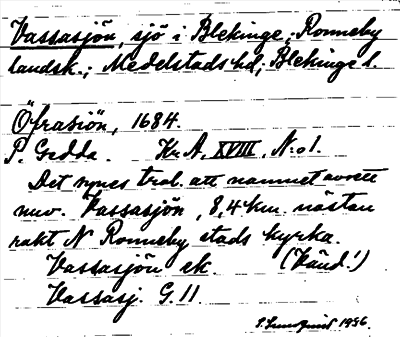 Vassasjön, sjö i Blekinge; Ronneby
landsk.; Medelstads hd; Blekinge l.
Öfrasiön, 1684.
P. Gedda. Kr. A. XVIII. N:o 1.
Det synes trol. att namnet avsett
nuv. Vassasjön, 8,4 km. nästan
rakt N Ronneby stads kyrka.
Vassasjön ek. (Vänd!)
Vassasj. G. 11.
1956.